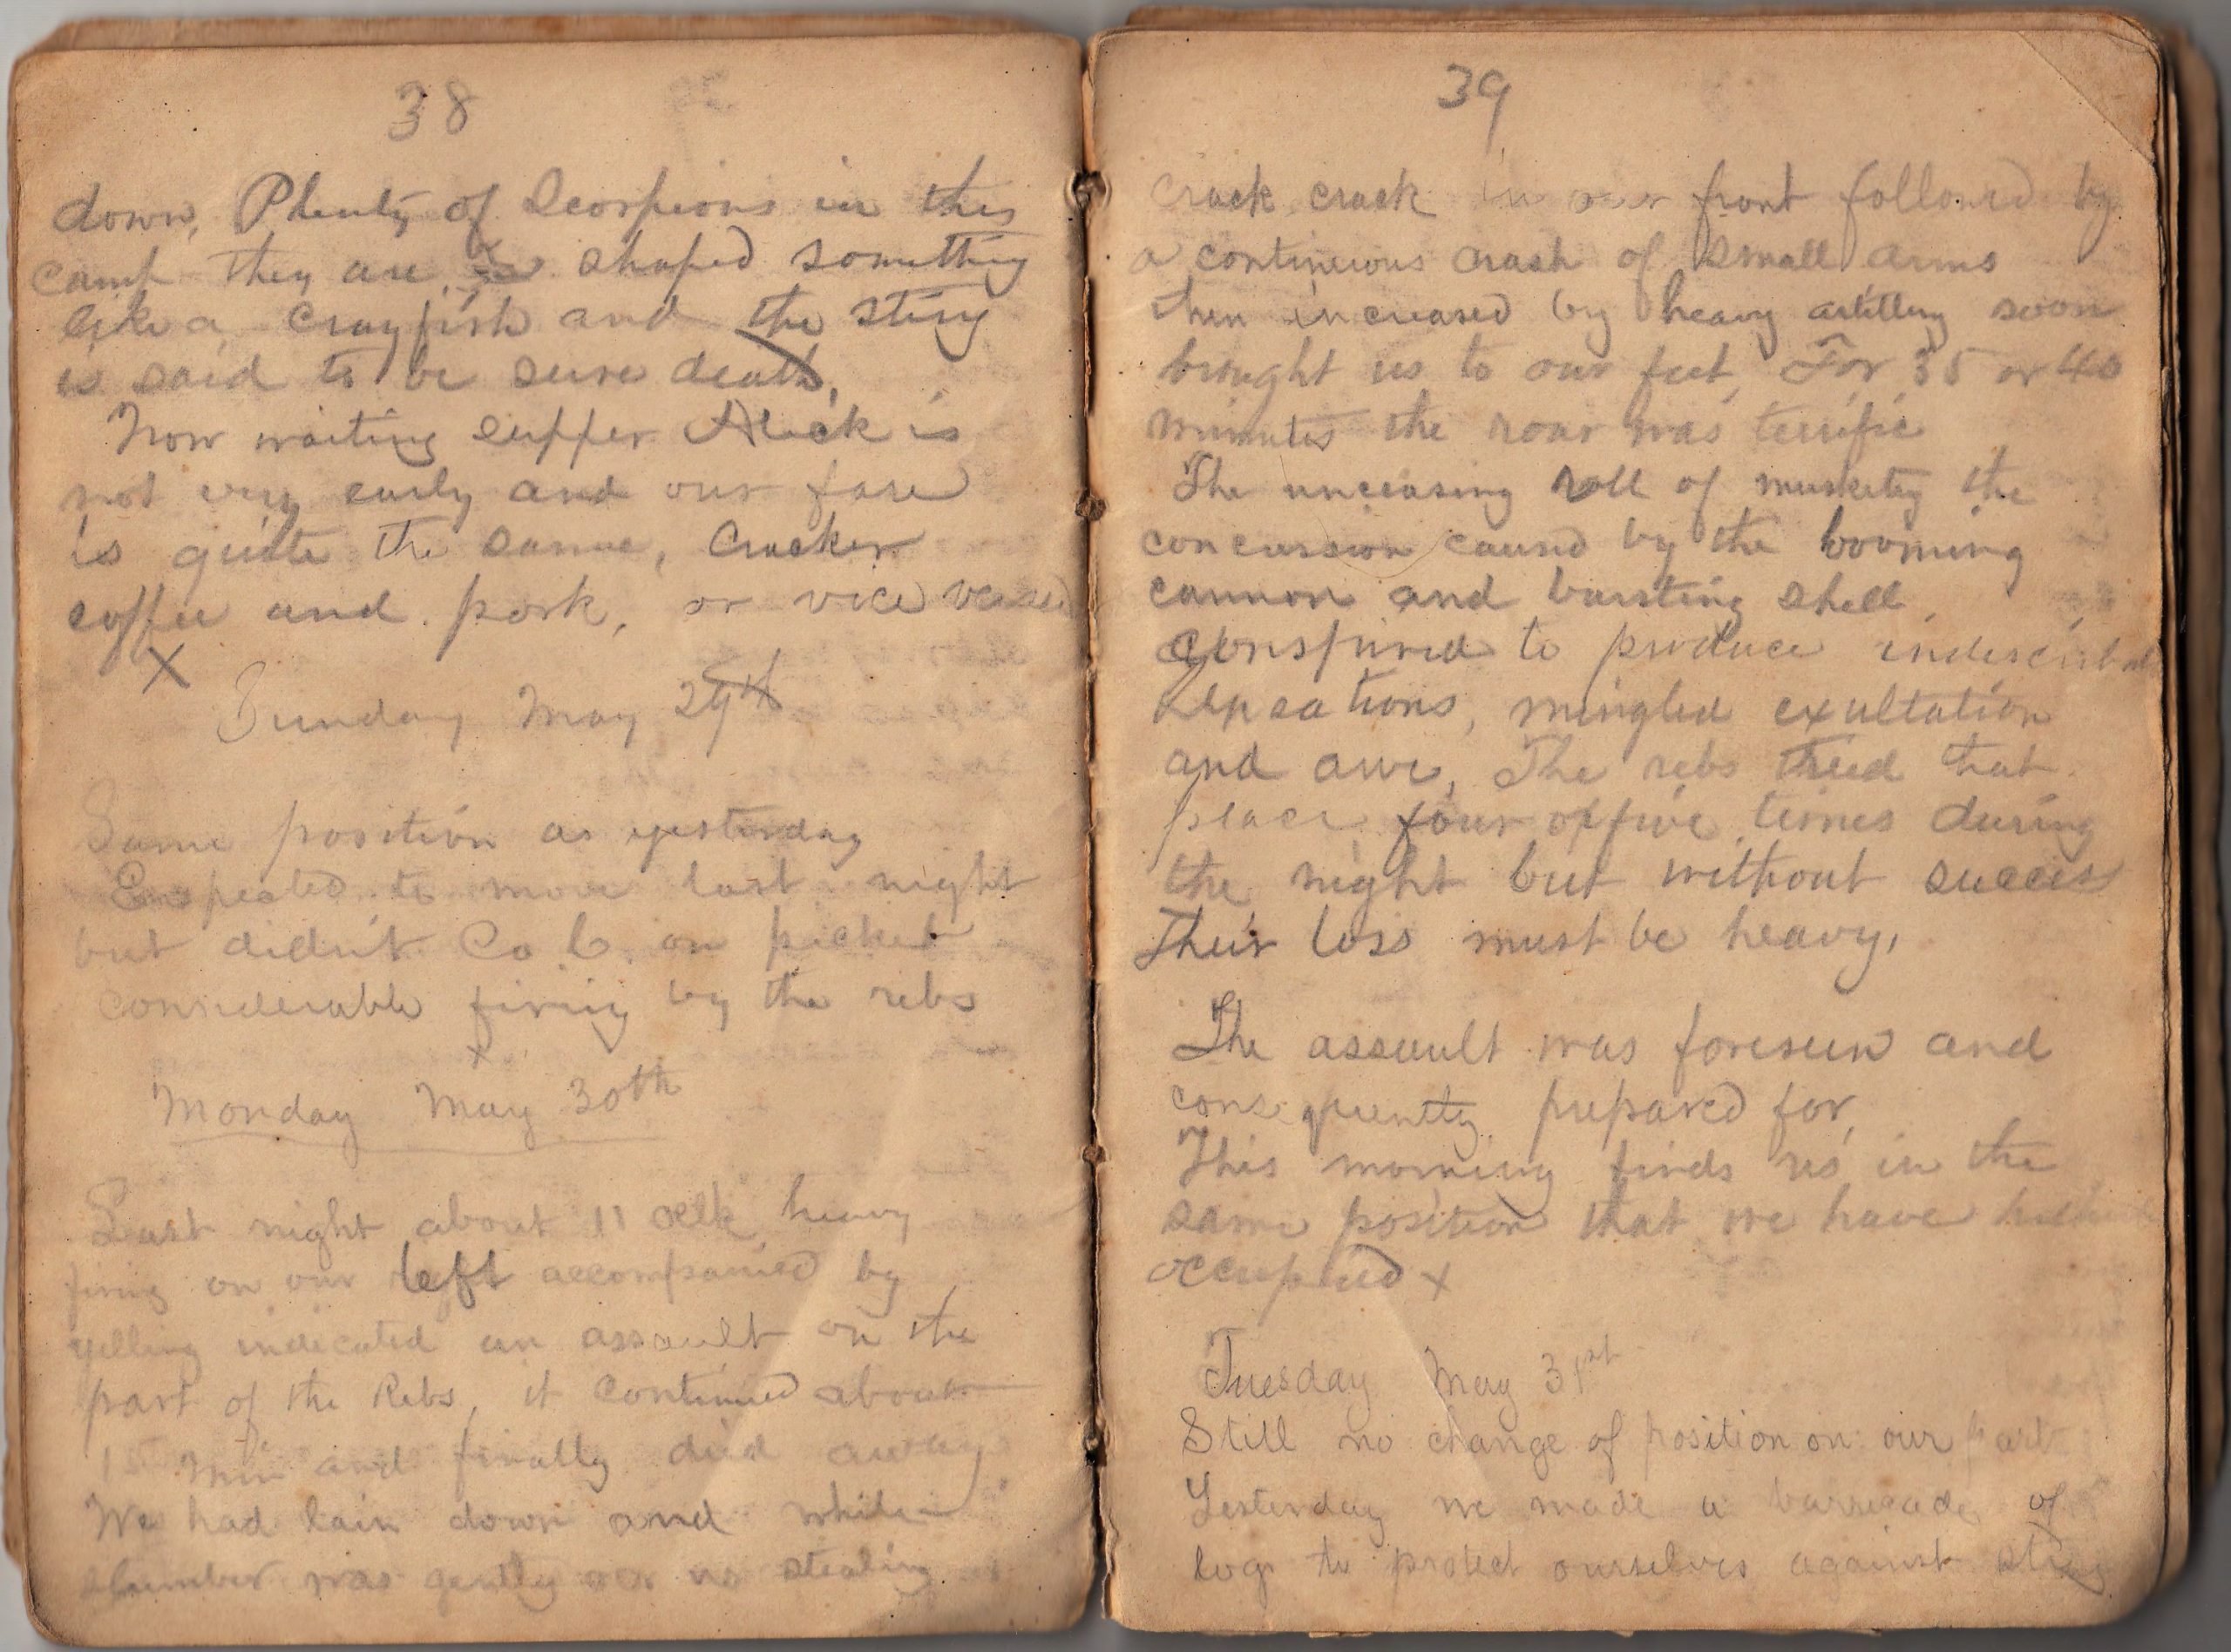 38
down, Plenty of Scorpions in this
camp they are shaped something
like a crayfish and the sting
is said to be sure death,
Now waiting supper Aleck is
not very early and our fare
is quite the same, Cracker
coffee and pork, or vice versa
X
Sunday May 29th
Same position as yesterday
Expected to move last night
but didn't Co C. on picket
considerable firing by the rebs
x
Monday May 30th
Last night about 11 oclk heavy
firing on our left accompanied by
yelling indicated an assault on the
part of the Rebs, it continued about
15 min and finally died away
We had lain down and while
slumber was gently oer us stealing
39
crack crack in our front followed by
a continuous crash of small arms
then increased by heavy artillery soon
brought us to our feet, For 35 or 40
minutes the roar was terrific
The unceasing roll of musketry the
concussion caused by the booming
cannon and bursting shell
conspired to produce
sensations, mingled exultation
and awe, The rebs tried that
place four or five times during
the night but without success
Their loss must be heavy,
The assault was foreseen and
consequently prepared for,
This morning finds us in the
same position that we have
occupied x
Tuesday May 31st
Still no change of position on our part
Yesterday we made a barricade of
logs to protect ourselves against